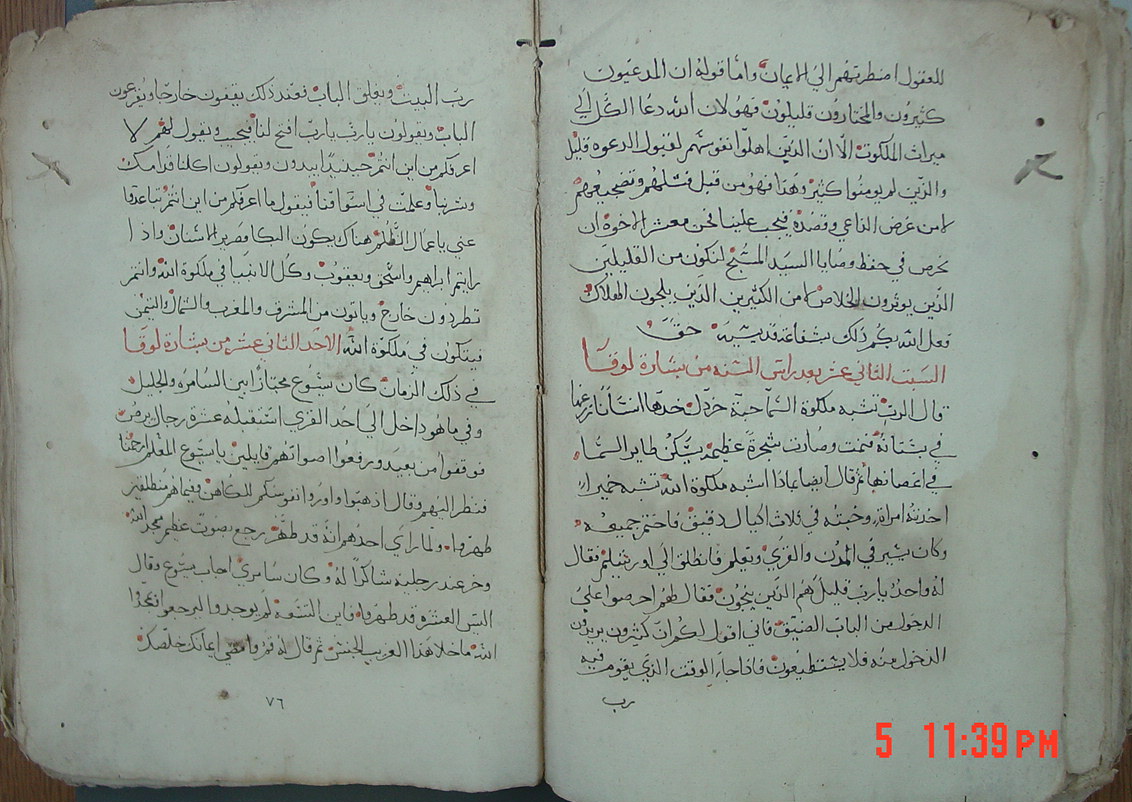 للعقول اضطرتهم الى الايمان واما قوله ان المدعيون
كثيرون والمختارون قليلون فهو لان الله دعا الكل الي
ميراث الملكوت الا ان الذين اهلوا نفوسهم لقبول الدعوه قليل
والذين لم يومنوا كثير وهذا فهو من قبل فشلهم وتضجيعهم
لا من غرض الداعي وقصده فيجب علينا نحن معشر الاخوة ان
نحرص في حفظ وصايا السيد المسيح لنكون من القليلين
الذين يوثرون الخلاص لا من الكثيرين الذين يلجون الهلاك
فعل الله بكم ذلك بشفاعة قديسيه حقا
السبت الثاني عشر بعد راس السنه من بشارة لوقا
قال الرب تشبه ملكوة السما حبة خردل اخدها انسانا زرعها
في بستانه فنمت وصارت شجرة عظيمه يسكن طاير السما
في اغصانها ثم قال ايضا بماذا اشبه ملكوة الله تشبه خميرا
اخدته امراة وخبته في ثلاث اكيال دقيق فاختمر جميعه
وكان يسير في المدن والقري ويعلم فانطلق الي اورشليم فقال
له واحد يا رب قليل هم الذين ينجون فقال لهم احرصوا على
الدخول من الباب الضيق فاني اقول لكم ان كثيرون يريدون
الدخول منه فلا يستطيعون فاذا جا الوقت الذي يقوم فيه
رب
رب البيت ويغلق الباب فعند ذلك يقفون خارجا ويقرعون
الباب ويقولون يا رب يا رب افتح لنا فيجيب ويقول لهم لا
اعرفكم من اين انتم حينيذ يبدون ويقولون اكلنا قدامك
وشربنا وعلمت في اسواقنا فيقول ما اعرفكم من اين انتم تباعدوا
عني يا عمال الظلم هناك يكون البكا وصرير الاسنان واذا
رايتم ابراهيم واسحق ويعقوب وكل الانبيا في ملكوة الله وانتم
تطردون خارج وياتون من المشرق والمغرب والشمال واليمن
فيتكون في ملكوة الله الاحد الثاني عشر من بشارة لوقا
في ذلك الزمان كان يسوع مجتاز ابين السامره والجليل
وفيما هو داخل الي احد القري استقبله عشرة رجال برص
فوقفوا من بعيد ورفعوا اصواتهم قايلين يا يسوع المعلم ارحمنا
فنظر اليهم وقال اذهبوا واوروا نفوسكم للكاهن وفيما هم منطلقين
طهروا ولما راي احدهم انه قد طهر رجع بصوت عظيم مجد الله
وخر عند رجليه شاكرا له وكان سامري اجاب يسوع وقال
اليس العشره قد طهروا فاين التسعه لم يوجدوا ليرجعوا يمجدوا
الله ما خلا هذا الغريب الجنس ثم قال له قم وامضي ايمانك خلصك
٧٦
5 11:39 PM